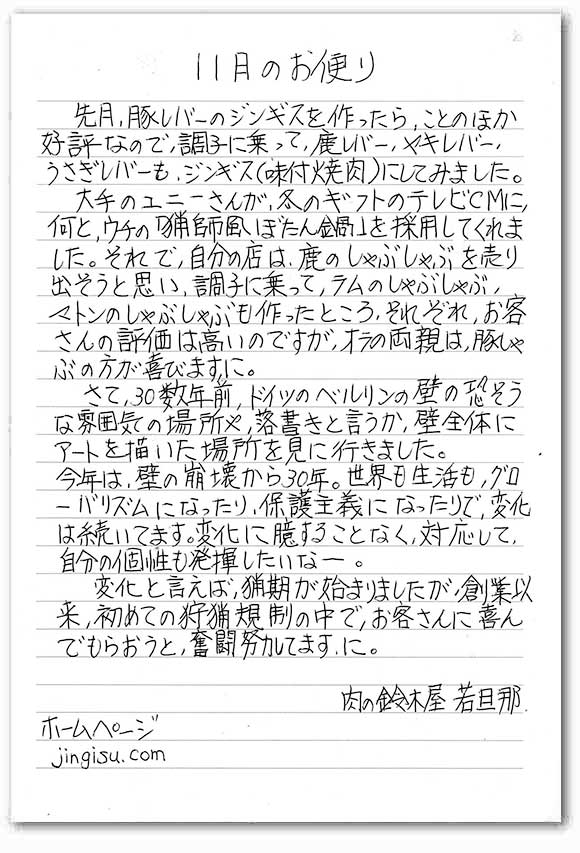 11月のお便り
先月，豚レバーのジンギスを作ったら，ことのほか
好評なので，調子に乗って，鹿レバー，ヤギレバー，
うさぎレバーも，ジンギス(味付焼肉)にしてみました。
大手のユニーさんが，冬のギフトのテレビCMに，
何と，ウチの「猟師風，ぼたん鍋」を採用してくれま
した。それで，自分の店は，鹿のしゃぶしゃぶを売り
出そうと思い，調子に乗って，ラムのしゃぶしゃぶ，
マトンのしゃぶしゃぶも作ったところ，それぞれ，お客
さんの評価は高いのですが，オラの両親は，豚しゃ
ぶの方が喜びますに。
さて，30数年前，ドイツのベルリンの壁の恐そう
な雰囲気の場所や，落書きと言うか，壁全体に
アートを描いた場所を見に行きました。
今年は，壁の崩壊から30年。世界も生活も，グロ
ーバリズムになったり，保護主義になったりで，変化
は続いてます。変化に臆することなく，対応して，
自分の個性も発揮したいなー。
変化と言えば，猟期が始まりましたが，創業以
来，初めての狩猟規制の中で，お客さんに喜ん
でもらおうと，奮闘努力してます，に。
肉の鈴木屋 若旦那
ホームページ
jingisu.com